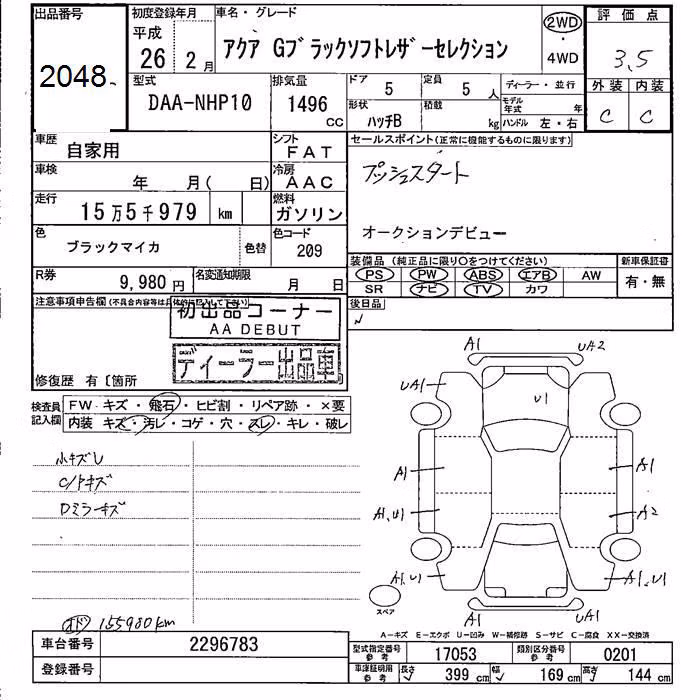 出品番号
2048
初度登録年月
平成
26年 2月
車名・グレード
アクア Gブラックソフトレザーセレクション
2WD
・
4WD
評価点
3.5
外装 内装
C C
型式
DAA-NHP10
排気量
1496 CC
ドア
5
定員
5人
形状
ハッチB
積載
kg
ディーラー・並行
モデル年式 年
ハンドル 左・右
車歴
自家用
シフト
FAT
車検
年 月( 日)
冷房
AAC
走行
15万5千979 km
燃料
ガソリン
色
ブラックマイカ
色替
色コード
209
R券
9,980円
名変通知期限
月 日
セールスポイント(正常に機能するものに限ります)
プッシュスタート
オークションデビュー
装備品 (純正品に限り○をつけてください)
PS PW ABS エアB AW
SR ナビ TV カワ
新車保証書
有・無
後日品
注意事項申告欄(不具合内容等は具体的に記入して下さい)
初出品コーナー
AA DEBUT
ディーラー出品車
修復歴 有〔箇所
検査員記入欄
FW キズ・飛石・ヒビ割・リペア跡・×要
内装 キズ・汚レ・コゲ・穴・スレ・キレ・破レ
小キズU
C/Pキズ
Dミラーキズ
オド 155980km
A1 UA2
UA1 U1
A1 A1
A1,U1 A2
A1,U1 A1,U1
スペア
A1 UA1
A-キズ E-エクボ U-凹み W-補修跡 S-サビ C-腐食 XX-交換済
車台番号
2296783
登録番号
型式指定番号 参考
17053
類別区分番号 参考
0201
車庫証明用 参考
長さ 399 cm
幅 169 cm
高さ 144 cm